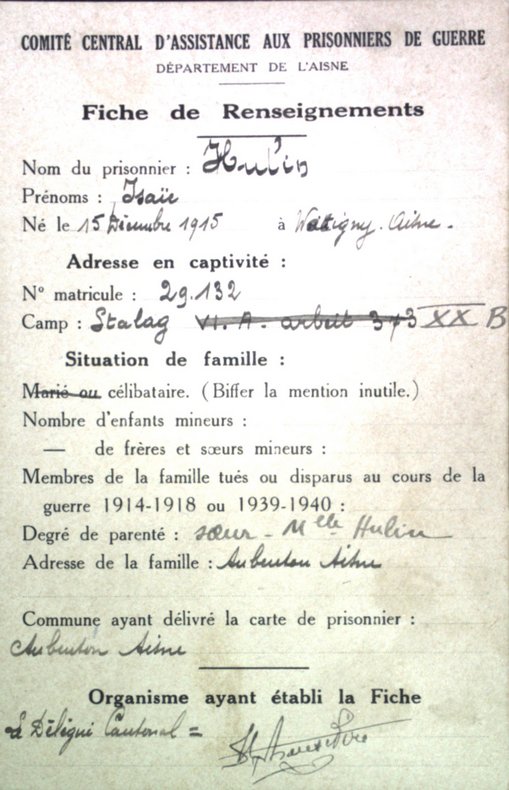 COMITÉ CENTRAL D'ASSISTANCE AUX PRISONNIERS DE GUERRE
DÉPARTEMENT DE L'AISNE
Fiche de Renseignements
Nom du prisonnier : Hulin
Prénoms : Isaïe
Né le 15 Décembre 1915 à Watigny. Aisne.
Adresse en captivité :
N° matricule : 29.132
Camp : Stalag VI. A - arbeit 373 XX B
Situation de famille :
Marié ou célibataire. (Biffer la mention inutile.)
Nombre d'enfants mineurs :
— de frères et sœurs mineurs :
Membres de la famille tués ou disparus au cours de la
guerre 1914-1918 ou 1939-1940 :
Degré de parenté : sœur - Mlle Hulin
Adresse de la famille : Aubenton Aisne
Commune ayant délivré la carte de prisonnier :
Aubenton Aisne
Organisme ayant établi la Fiche
Le Délégué Cantonal =